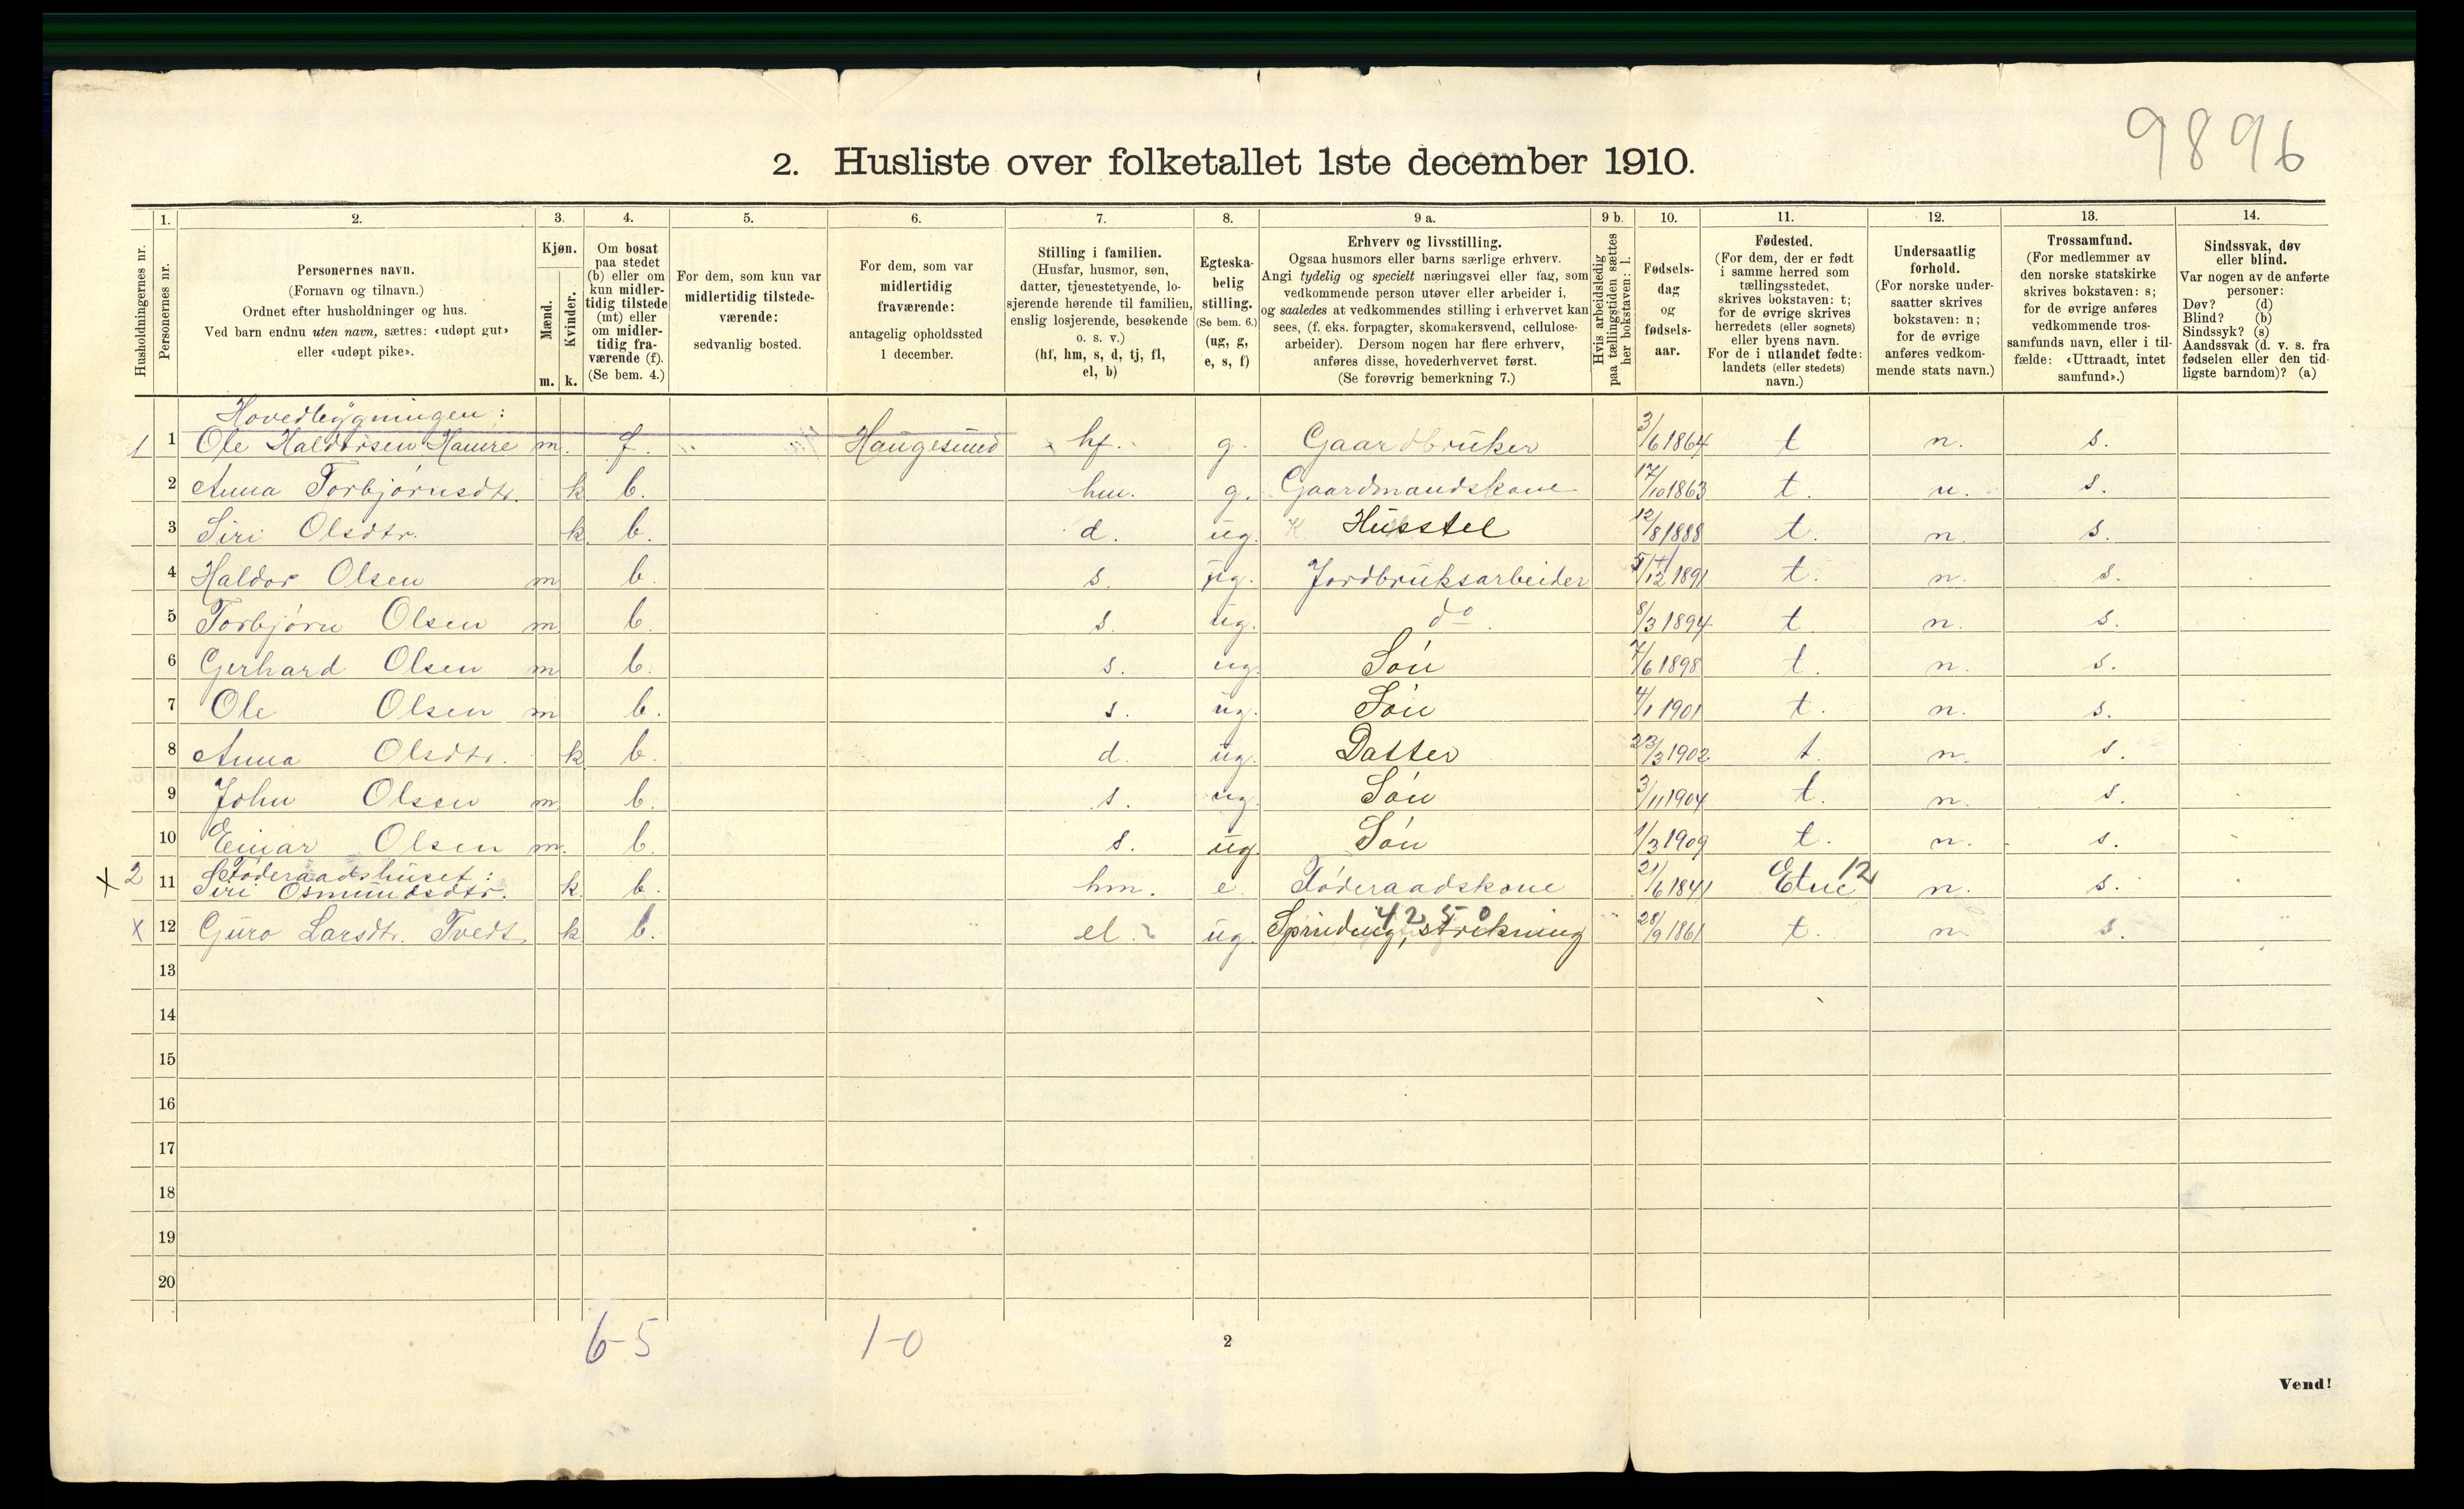 9896
2. Husliste over folketallet 1ste december 1910.
1. 2. 3. 4. 5. 6. 7. 8. 9 a. 9 b. 10. 11. 12. 13. 14.
Husholdningernes nr.
Personernes nr.
Personernes navn.
(Fornavn og tilnavn.)
Ordnet efter husholdninger og hus.
Ved barn endnu uten navn, sættes: «udøpt gut»
eller «udøpt pike».
Kjøn.
Mænd.
Kvinder.
m. k.
Om bosat
paa stedet
(b) eller om
kun midler-
tidig tilstede
(mt) eller
om midler-
tidig fra-
værende (f).
(Se bem. 4.)
For dem, som kun var
midlertidig tilstede-
værende:
sedvanlig bosted.
For dem, som var
midlertidig
fraværende:
antagelig opholdssted
1 december.
Stilling i familien.
(Husfar, husmor, søn,
datter, tjenestetyende, lo-
sjerende hørende til familien,
enslig losjerende, besøkende
o. s. v.)
(hf, hm, s, d, tj, fl,
el, b)
Egteska-
belig
stilling.
(Se bem. 6.)
(ug, g,
e, s, f)
Erhverv og livsstilling.
Ogsaa husmors eller barns særlige erhverv.
Angi tydelig og specielt næringsvei eller fag, som
vedkommende person utøver eller arbeider i,
og saaledes at vedkommendes stilling i erhvervet kan
sees, (f. eks. forpagter, skomakersvend, cellulose-
arbeider). Dersom nogen har flere erhverv,
anføres disse, hovederhvervet først.
(Se forøvrig bemerkning 7.)
Hvis arbeidsledig
paa tællingstiden sættes
her bokstaven: l.
Fødsels-
dag
og
fødsels-
aar.
Fødested.
(For dem, der er født
i samme herred som
tællingsstedet,
skrives bokstaven: t;
for de øvrige skrives
herredets (eller sognets)
eller byens navn.
For de i utlandet fødte:
landets (eller stedets)
navn.)
Undersaatlig
forhold.
(For norske under-
saatter skrives
bokstaven: n;
for de øvrige
anføres vedkom-
mende stats navn.)
Trossamfund.
(For medlemmer av
den norske statskirke
skrives bokstaven: s;
for de øvrige anføres
vedkommende tros-
samfunds navn, eller i til-
fælde: «Uttraadt, intet
samfund».)
Sindssvak, døv
eller blind.
Var nogen av de anførte
personer:
Døv? (d)
Blind? (b)
Sindssyk? (s)
Aandssvak (d. v. s. fra
fødselen eller den tid-
ligste barndom)? (a)
Hovedbygningen:
1 1 Ole Haldorsen Hamre m. f. Haugesund hf. g. Gaardbruker 3/6 1864 t n. s.
2 Anna Torbjørnsdtr. k b. hm. g. Gaardmandskone 17/10 1863 t. n. s.
3 Siri Olsdtr. k. b. d. ug. Husstel 12/8 1888 t. n. s.
4 Haldor Olsen m b. s. ug. Jordbruksarbeider /12 1891 t. n. s.
5 Torbjørn Olsen m b. s. ug. do 8/3 1894 t. n. s.
6 Gerhard Olsen m b. s. ug. Søn 7/6 1898 t. n. s.
7 Ole Olsen m b. s. ug. Søn 4/1 1901 t. n. s.
8 Anna Olsdtr. k b. d. ug. Datter 23/3 1902 t. n. s.
9 John Olsen m b. s. ug. Søn 3/11 1904 t. n. s.
10 Einar Olsen m. b. s. ug. Søn 1/3 1909 t. n. s.
Føderaadshuset:
x 2 11 Siri Osmundsdtr. k. b. hm. e. Føderaadskone 21/6 1841 Etne 12 n. s.
4250
x 12 Guro Larsdtr. Tvedt k b. el. ug. Spinding, strikning 28/9 1861 t. n s.
13
14
15
16
17
18
19
20
6-5 1-0
2
Vend!